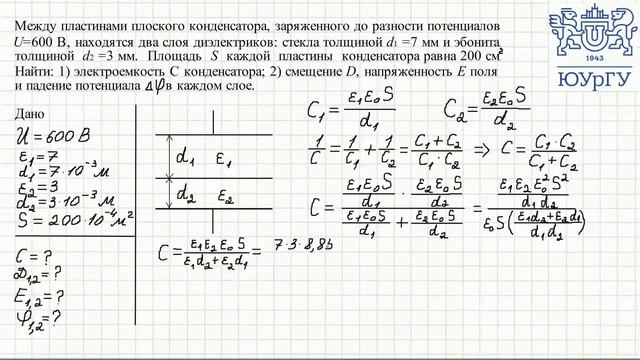 Между пластинами плоского конденсатора, заряженного до разности потенциалов
U=600 В, находятся два слоя диэлектриков: стекла толщиной d₁ =7 мм и эбонита
толщиной d₂ =3 мм. Площадь S каждой пластины конденсатора равна 200 см²
Найти: 1) электроемкость С конденсатора; 2) смещение D, напряженность E поля
и падение потенциала Δφ в каждом слое.
1943
ЮУрГУ
Дано
U = 600 В
ε₁ = 7
d₁ = 7·10⁻³ м
ε₂ = 3
d₂ = 3·10⁻³ м
S = 200·10⁻⁴ м²
C = ?
D₁,₂ = ?
E₁,₂ = ?
φ₁,₂ = ?
d₁ ε₁
d₂ ε₂
C₁ = ε₁ε₀S / d₁ C₂ = ε₂ε₀S / d₂
1/C = 1/C₁ + 1/C₂ = (C₁ + C₂) / (C₁ · C₂) => C = (C₁ · C₂) / (C₁ + C₂)
C = (ε₁ε₀S / d₁ · ε₂ε₀S / d₂) / (ε₁ε₀S / d₁ + ε₂ε₀S / d₂) = (ε₁ε₂ε₀²S² / d₁d₂) / (ε₀S((ε₁d₂ + ε₂d₁) / d₁d₂))
C = ε₁ε₂ε₀S / (ε₁d₂ + ε₂d₁) = 7·3·8,85